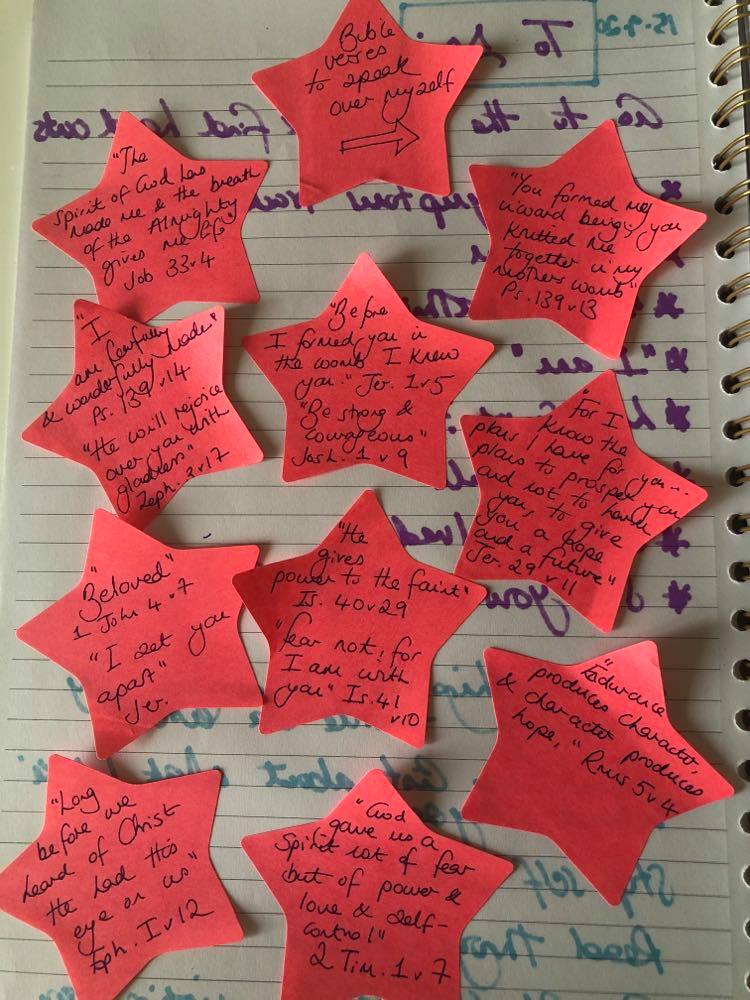 Bible
verses
to speak
over myself
"The
spirit of God has
made me & the breath
of the Almighty
gives me life"
Job 33v4
"You formed my
inward being; you
knitted me
together in my
mothers womb"
Ps. 139v13
"I
am fearfully
& wonderfully made"
Ps. 139v14
"He will rejoice
over you with
gladness"
Zeph. 3v17
"Before
I formed you in
the womb I knew
you." Jer. 1v5
"Be strong &
courageous"
Josh. 1v9
"For I
know the
plans I have for you...
plans to prosper you
and not to harm
you, to give
you a hope
and a future"
Jer. 29v11
"Beloved"
1 John 4v7
"I set you
apart"
Jer.
"He
gives
power to the faint"
Is. 40v29
"fear not; for
I am with
you" Is. 41
v10
"Endurance
produces character,
& character produces
hope," Rms 5v4
"Long
before we
heard of Christ
He had His
eye on us"
Eph. 1v12
"God
gave us a
Spirit not of fear
but of power &
love & self-
control"
2 Tim. 1v7
15-9-20
To
Go to the
find
cards
"I am"
you
about
Stop self
Read